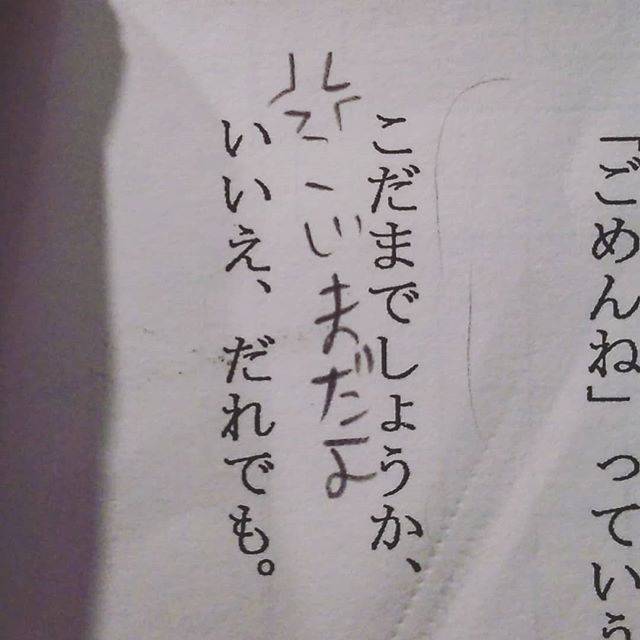 「ごめんね」っていう
こだまでしょうか、
こじまだよ
いいえ、だれでも。